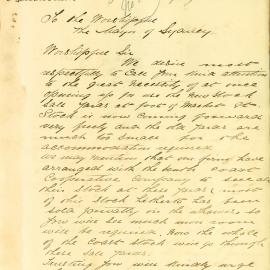 To the Worshipful
The Mayor of Sydney
Worshipful Sir
We desire most
respectfully to call your kind attention
to the great necessity of at once
opening up for use the New Stock
Sale Yards at foot of Market St.
Stock is now coming forward
very freely and the old Yards are
much too small for the
accommodation required
We may mention that our firm have
arranged with the South Coast
Corporation Company to sell all
their Stock at these Yards; most
of this Stock hitherto has been
sold privately on the
will be required. Now the whole
of the Coast Stock will go through
these Sale Yards.
Trusting you will kindly urge